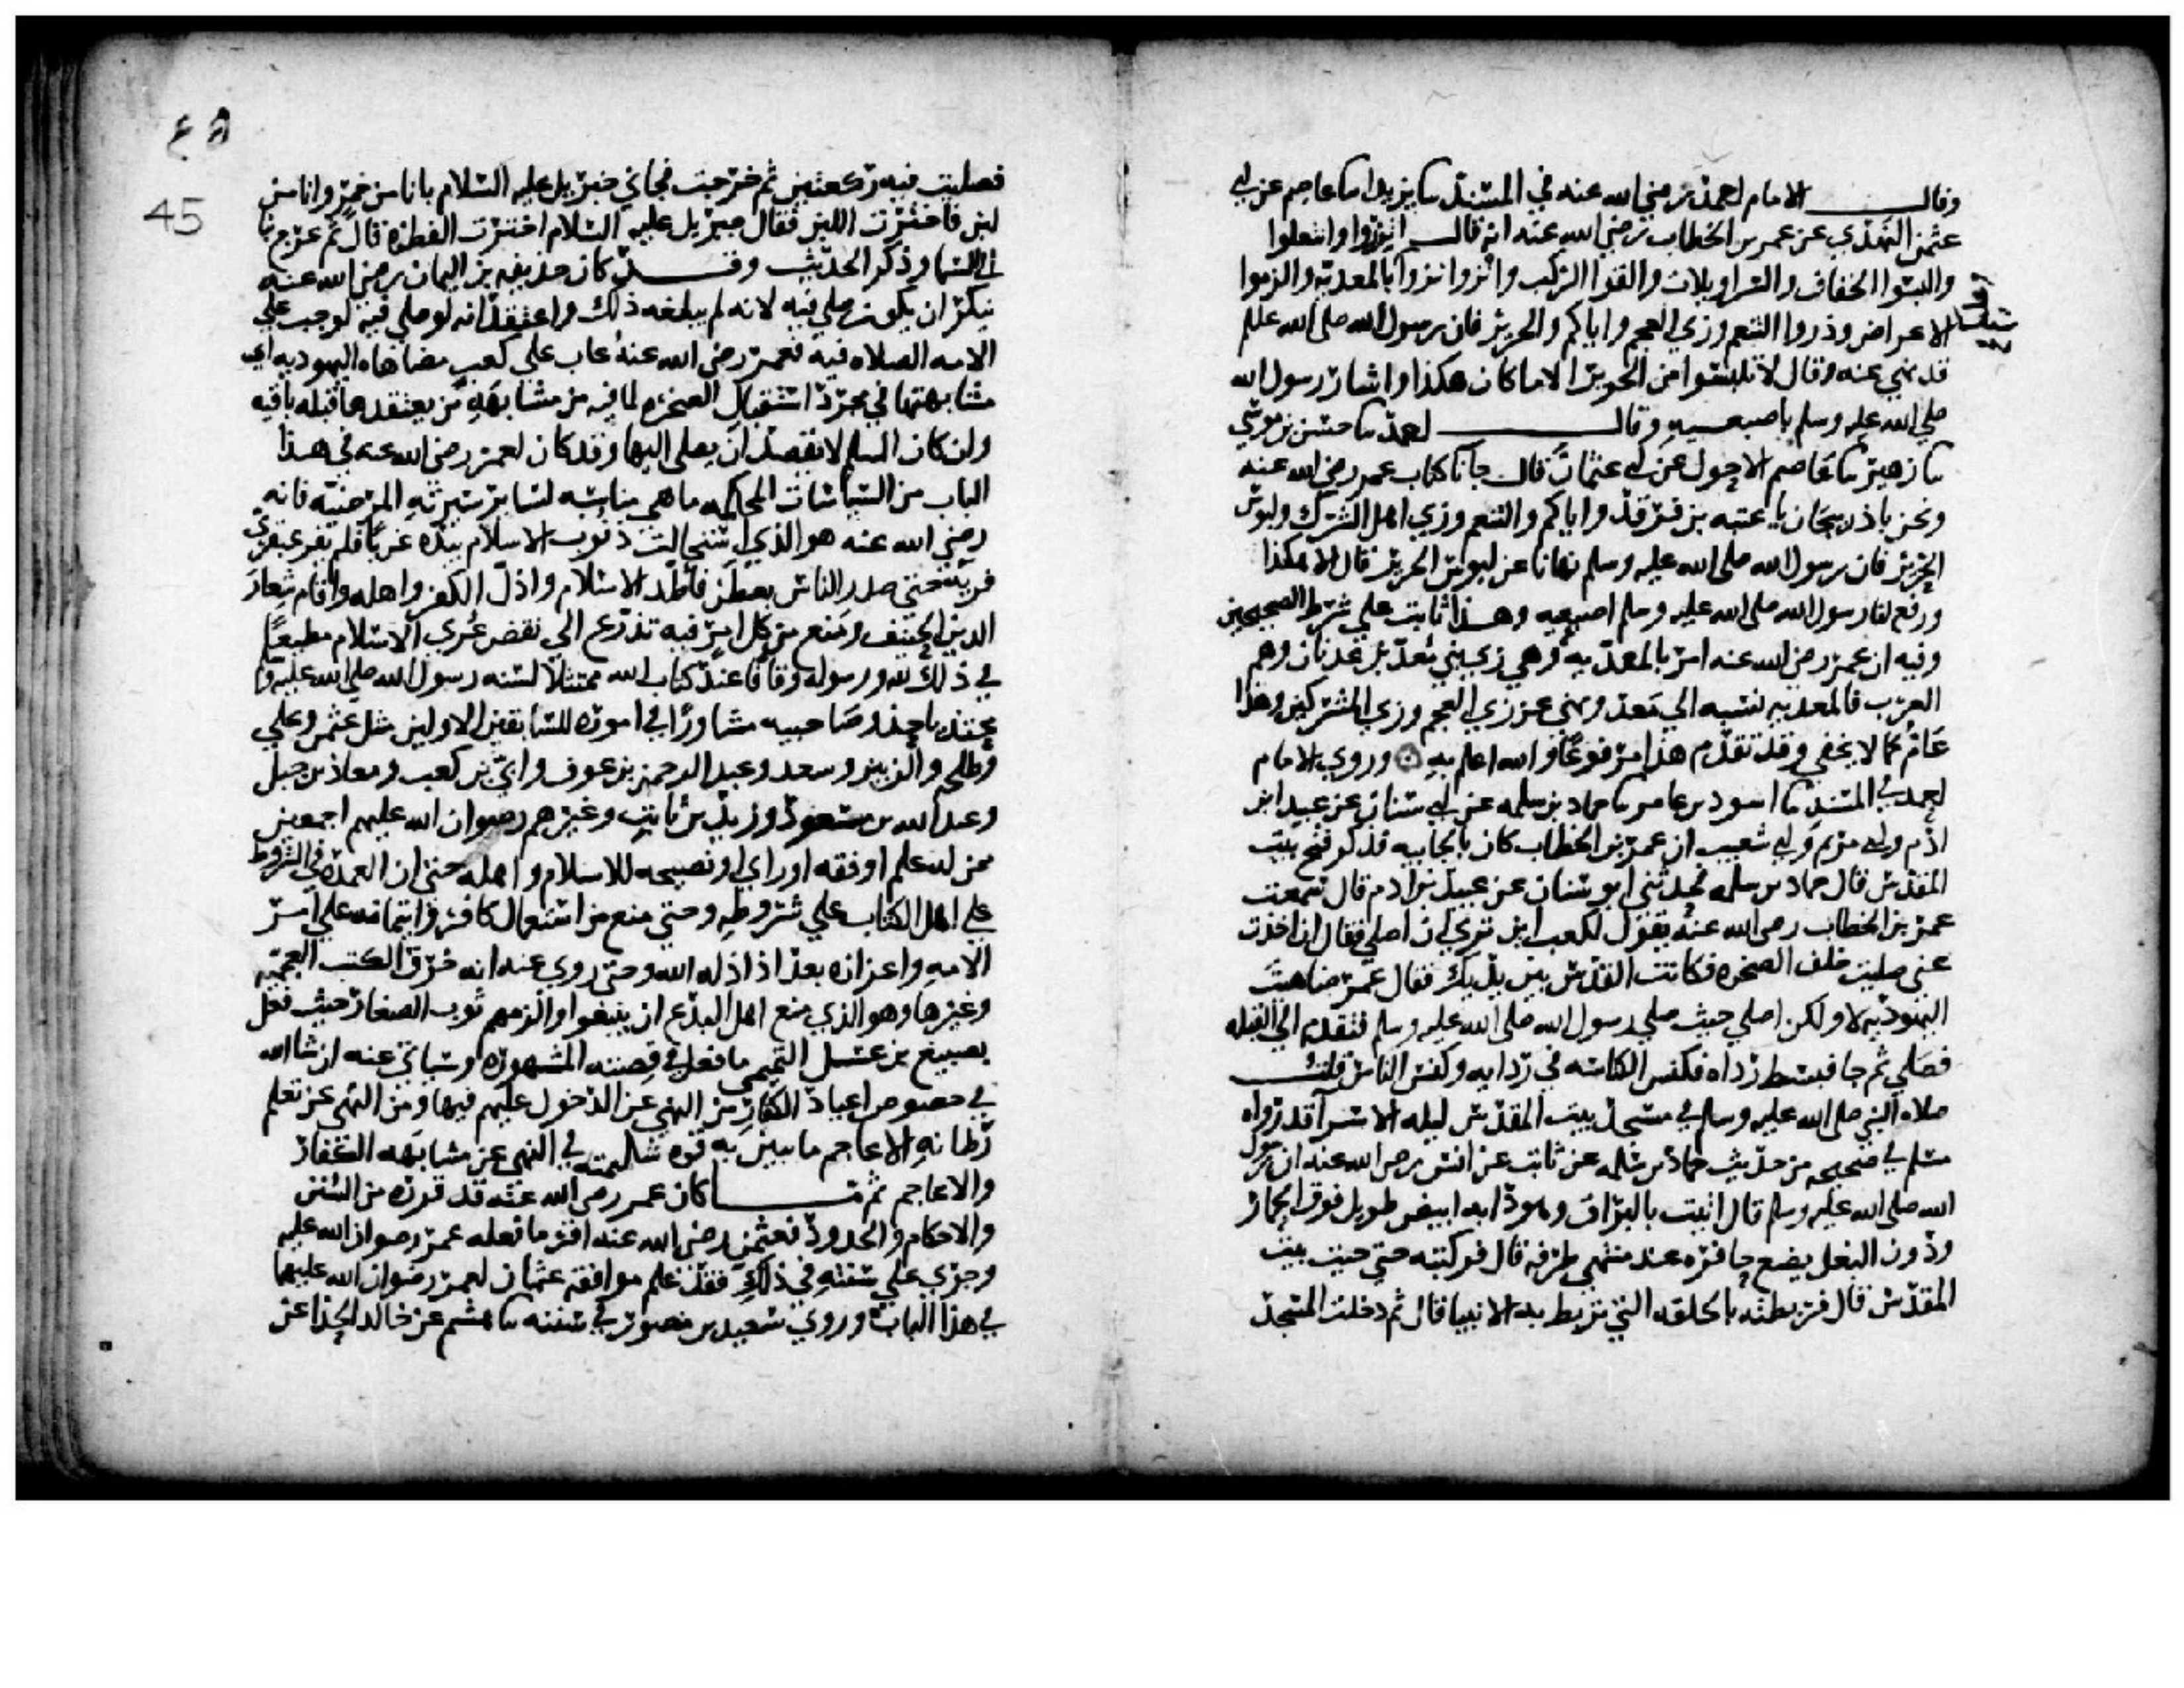 وقال الامام احمد رضي الله عنه في المسند ثنا يزيد انا عاصم عن ابي
عثمن النهدي عن عمر بن الخطاب رضي الله عنه انه قال اتزروا وانتعلوا
والبسوا الخفاف والسراويلات والقوا الركب وانزوا نزوا بالمعديه والزموا
الاعراض وذروا التنعم وزي العجم واياكم والحرير فان رسول الله صلى الله عليه
قد نهي عنه وقال لا تلبسوا من الحرير الا ما كان هكذا واشار رسول الله
صلي الله عليه وسلم باصبعيه وقال احمد ثنا حسن بن موسي
ثنا زهير ثنا عاصم الاحول عن ابي عثمان قال جانا كتاب عمر رضي الله عنه
ونحن باذربيجان يا عتبه بن فرقد واياكم والتنعم وزي اهل الشرك ولبوس
الحرير فان رسول الله صلى الله عليه وسلم نهانا عن لبوس الحرير قال الا هكذا
ورفع لنا رسول الله صلى الله عليه وسلم اصبعيه وهذا ثابت علي شرط الصحيحين
وفيه ان عمر رضي الله عنه امر بالمعديه وهي زي بني معد بن عدنان وهم
العرب فالمعديه نسبه الي معد ونهي عن زي العجم وزي المشركين وهذا
عام كما لا يخفي وقد تقدم هذا مرفوعا والله اعلم به وروي الامام
احمد في المسند ثنا اسود بن عامر ثنا حماد بن سلمه عن ابي سنان عن عبيد ابن
ادم وابي مريم وابي شعيب ان عمر بن الخطاب كان بالجابيه فذكر فتح بيت
المقدس قال حماد بن سلمه فحدثني ابو سنان عن عبيد بن ادم قال سمعت
عمر بن الخطاب رضي الله عنه يقول لكعب اين تري ان اصلي فقال ان اخذت
عني صليت خلف الصخره فكانت القدس بين يديك فقال عمر ضاهيت
اليهوديه لا ولكن اصلي حيث صلي رسول الله صلى الله عليه وسلم فتقدم الي القبله
فصلي ثم جا فبسط رداه فكنس الكناسه في ردايه وكنس الناس قلت
صلاه النبي صلى الله عليه وسلم في مسجد بيت المقدس ليله الاسرا قد رواه
مسلم في صحيحه من حديث حماد بن سلمه عن ثابت عن انس رضي الله عنه ان رسول
الله صلى الله عليه وسلم قال اتيت بالبراق وهو دابه ابيض طويل فوق الحمار
ودون البغل يضع حافره عند منتهي طرفه قال فركبته حتي جيت بيت
المقدس قال فربطته بالحلقه التي تربط به الانبيا قال ثم دخلت المسجد
٤٥
45
فصليت فيه ركعتين ثم خرجت فجاني جبريل عليه السلام باناء من خمر واناء من
لبن فاخترت اللبن فقال جبريل عليه السلام اخترت الفطره قال ثم عرج بنا
الي السما وذكر الحديث وقد كان حذيفه بن اليمان رضي الله عنه
ينكر ان يكون صلي فيه لانه لم يبلغه ذلك واعتقد انه لو صلي فيه لوجب علي
الامه الصلاه فيه فعمر رضي الله عنه عاب علي كعب مضاهاه اليهوديه اي
مشابهتها في مجرد استقبال الصخره لما فيه من مشابهه من يعتقدها قبله باقيه
وان كان المسلم لا يقصد ان يصلي اليها وقد كان لعمر رضي الله عنه في هذا
الباب من السياسات المحكمه ما هي مناسبه لساير سيرته المرضيه فانه
رضي الله عنه هو الذي استحالت ذنوب الاسلام بيده غربا فلم يفر عبقري
فريه حتي صدر الناس بعطن فاطد الاسلام واذل الكفر واهله واقام شعار
الدين الحنيف ومنع من كل امر فيه تذرع الي نقض عري الاسلام مطيعا
في ذلك لله ورسوله وقافا عند كتاب الله ممتثلا لسنه رسول الله صلى الله عليه وسلم
محتذيا حذو صاحبيه مشاورا في اموره للسابقين الاولين مثل عثمن وعلي
وطلحه والزبير وسعد وعبد الرحمن بن عوف وابي بن كعب ومعاذ بن جبل
وعبد الله بن مسعود وزيد بن ثابت وغيرهم رضوان الله عليهم اجمعين
ممن له علم او فقه او راي او نصيحه للاسلام واهله حتي ان العمده في الشروط
علي اهل الكتاب علي شروطه وحتي منع من استعمال كافر او ايتمانه علي امر
الامه واعزازه بعد اذ اذله الله وحتي روي عنه انه خرق الكتب العجميه
وغيرها وهو الذي منع اهل البدع ان ينبغوا والزمهم ثوب الصغار حيث فعل
بصبيغ بن عسل التميمي ما فعل في قصته المشهوره وسياتي عنه ان شا الله
في خصوص اعياد الكفار من النهي عن الدخول عليهم فيها ومن النهي عن تعلم
رطانه الاعاجم ما يبين به قوه شكيمته في النهي عن مشابهه الكفار
والاعاجم ثم ما كان عمر رضي الله عنه قد قرره من السنن
والاحكام والحدود فعثمن رضي الله عنه اقر ما فعله عمر رضوان الله عليه
وجري علي سنته في ذلك فقد علم موافقه عثمان لعمر رضوان الله عليهما
في هذا الباب وروي سعيد بن منصور في سننه ثنا هشيم عن خالد الحذا عن